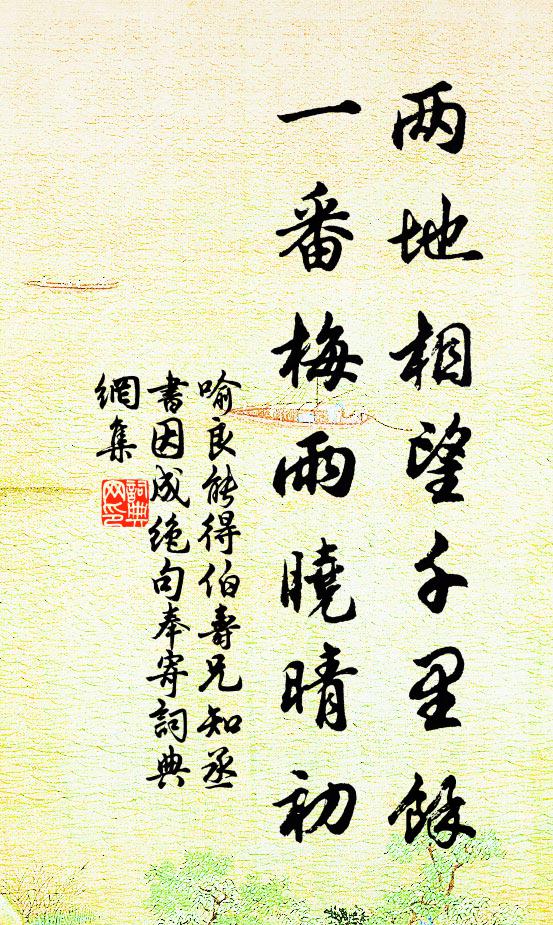 两地相望千里餘
一番梅雨曉晴初
喻良能得伯壽兄知丞
書因成绝句奉寄詞典
網集
詞典
网印